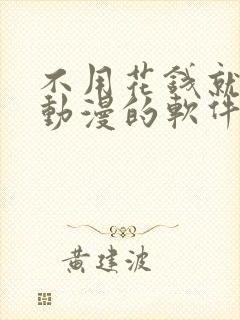 不用花錢就
動漫的軟件
黃建波